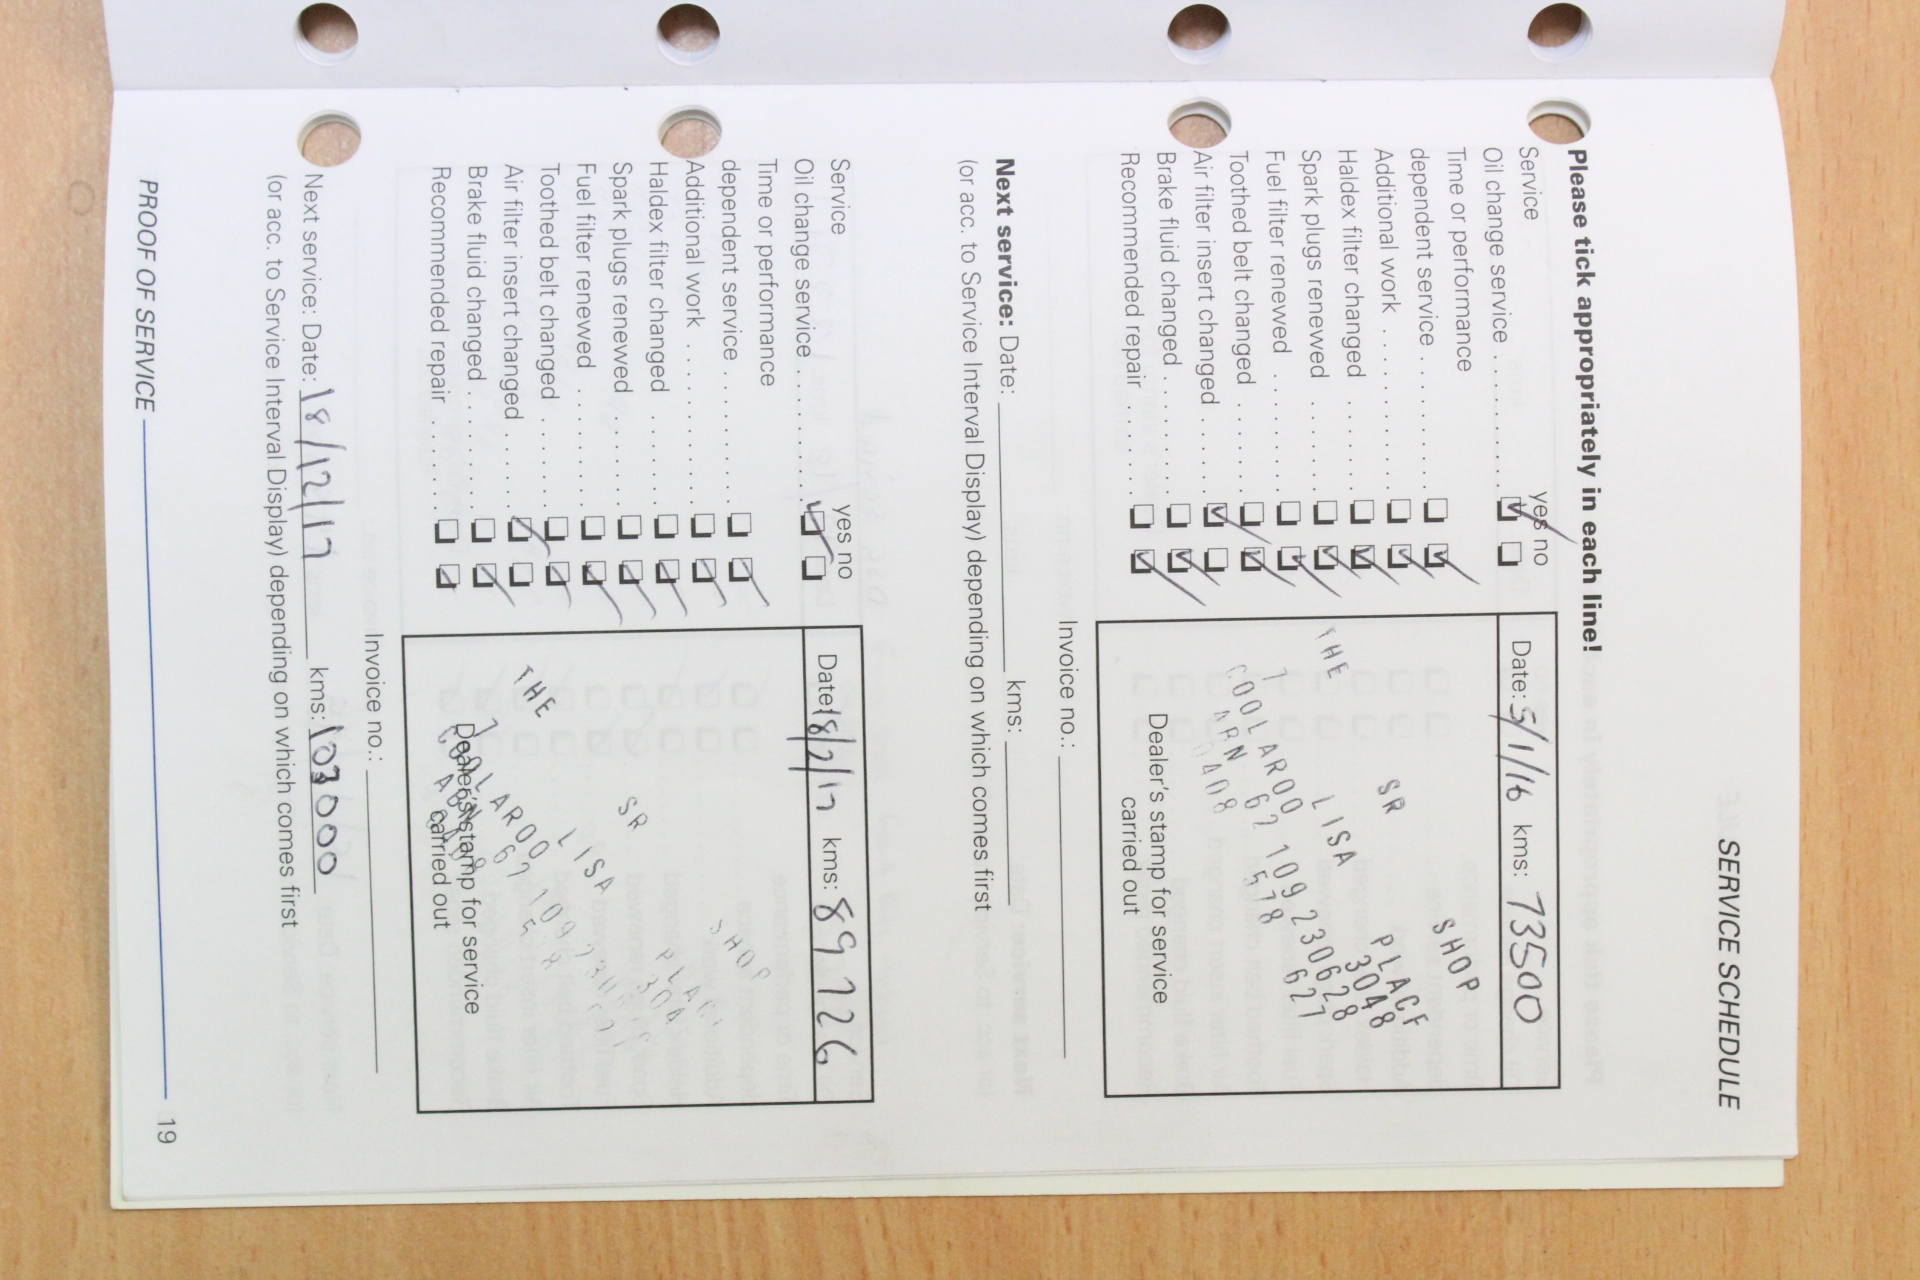 SERVICE SCHEDULE
Please tick appropriately in each line!
Service yes no
Oil change service
Time or performance
dependent service
Additional work
Haldex filter changed
Spark plugs renewed
Fuel filter renewed
Toothed belt changed
Air filter insert changed
Brake fluid changed
Recommended repair
Date: 5/1/16 kms: 73500
THE SR SHOP
1 LISA PLACE
COOLAROO 3048
ABN 67 109 230 628
0408 578 627
Dealer's stamp for service
carried out
Invoice no.:
Next service: Date: kms:
(or acc. to Service Interval Display) depending on which comes first
Service yes no
Oil change service
Time or performance
dependent service
Additional work
Haldex filter changed
Spark plugs renewed
Fuel filter renewed
Toothed belt changed
Air filter insert changed
Brake fluid changed
Recommended repair
Date: 18/2/17 kms: 89726
THE SR SHOP
1 LISA PLACE
COOLAROO 3048
ABN 67 109
Dealer's stamp for service
carried out
Invoice no.:
Next service: Date: 18/12/17 kms: 103000
(or acc. to Service Interval Display) depending on which comes first
PROOF OF SERVICE 19